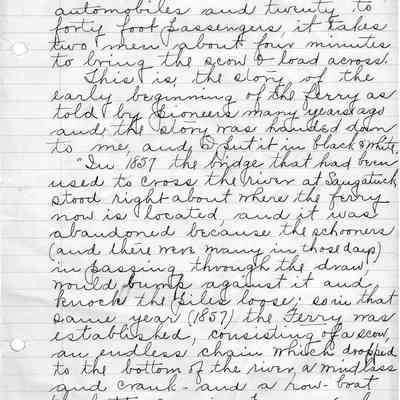 automobiles and twenty to
forty foot passengers, it takes
two men about four minutes
to bring the scow & load across.
This is the story of the
early beginning of the ferry as
told by pioneers many years ago
and the story was handed down
to me, and I put it in black & white.
"In 1857 the bridge that had been
used to cross the river at Saugatuck,
stood right about where the ferry
now is located, and it was
abandoned because the schooners
(and there were many in those days)
in passing through the draw,
would bump against it and
knock the piles loose; so in that
same year (1857) the Ferry was
established, consisting of a scow,
an endless chain which dropped
to the bottom of the river, a windlass
and crank - and a row-boat